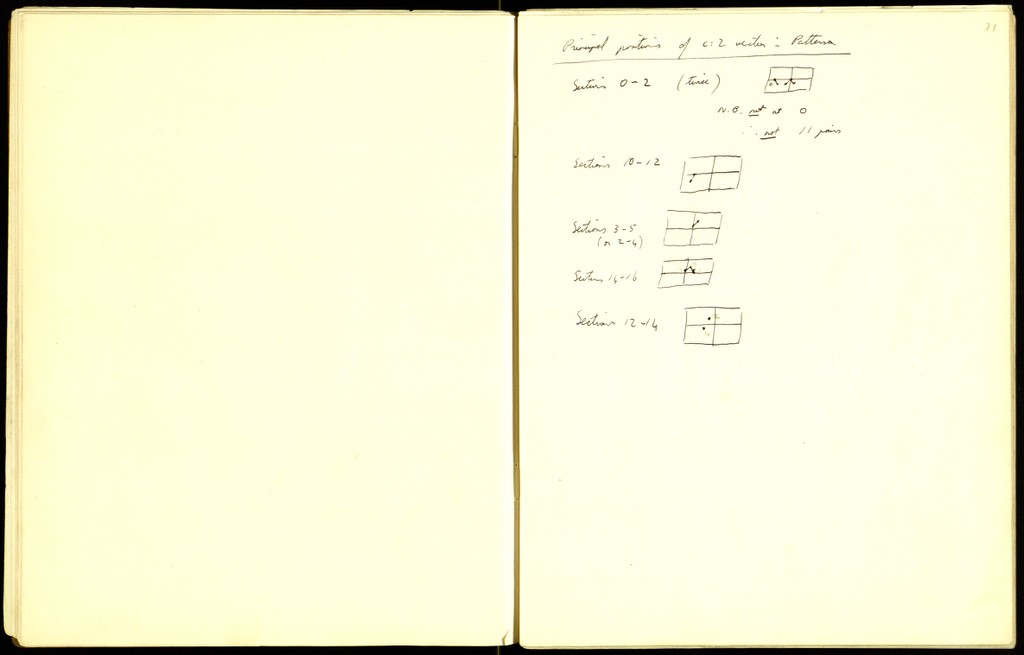 21
Principal positions of c:2 vector in Patterson
Sections 0-2 (twice)
N.B. not at 0
∴ not 11 pairs
Sections 10-12
Sections 3-5
(or 2-4)
Sections 14-16
Sections 12-14